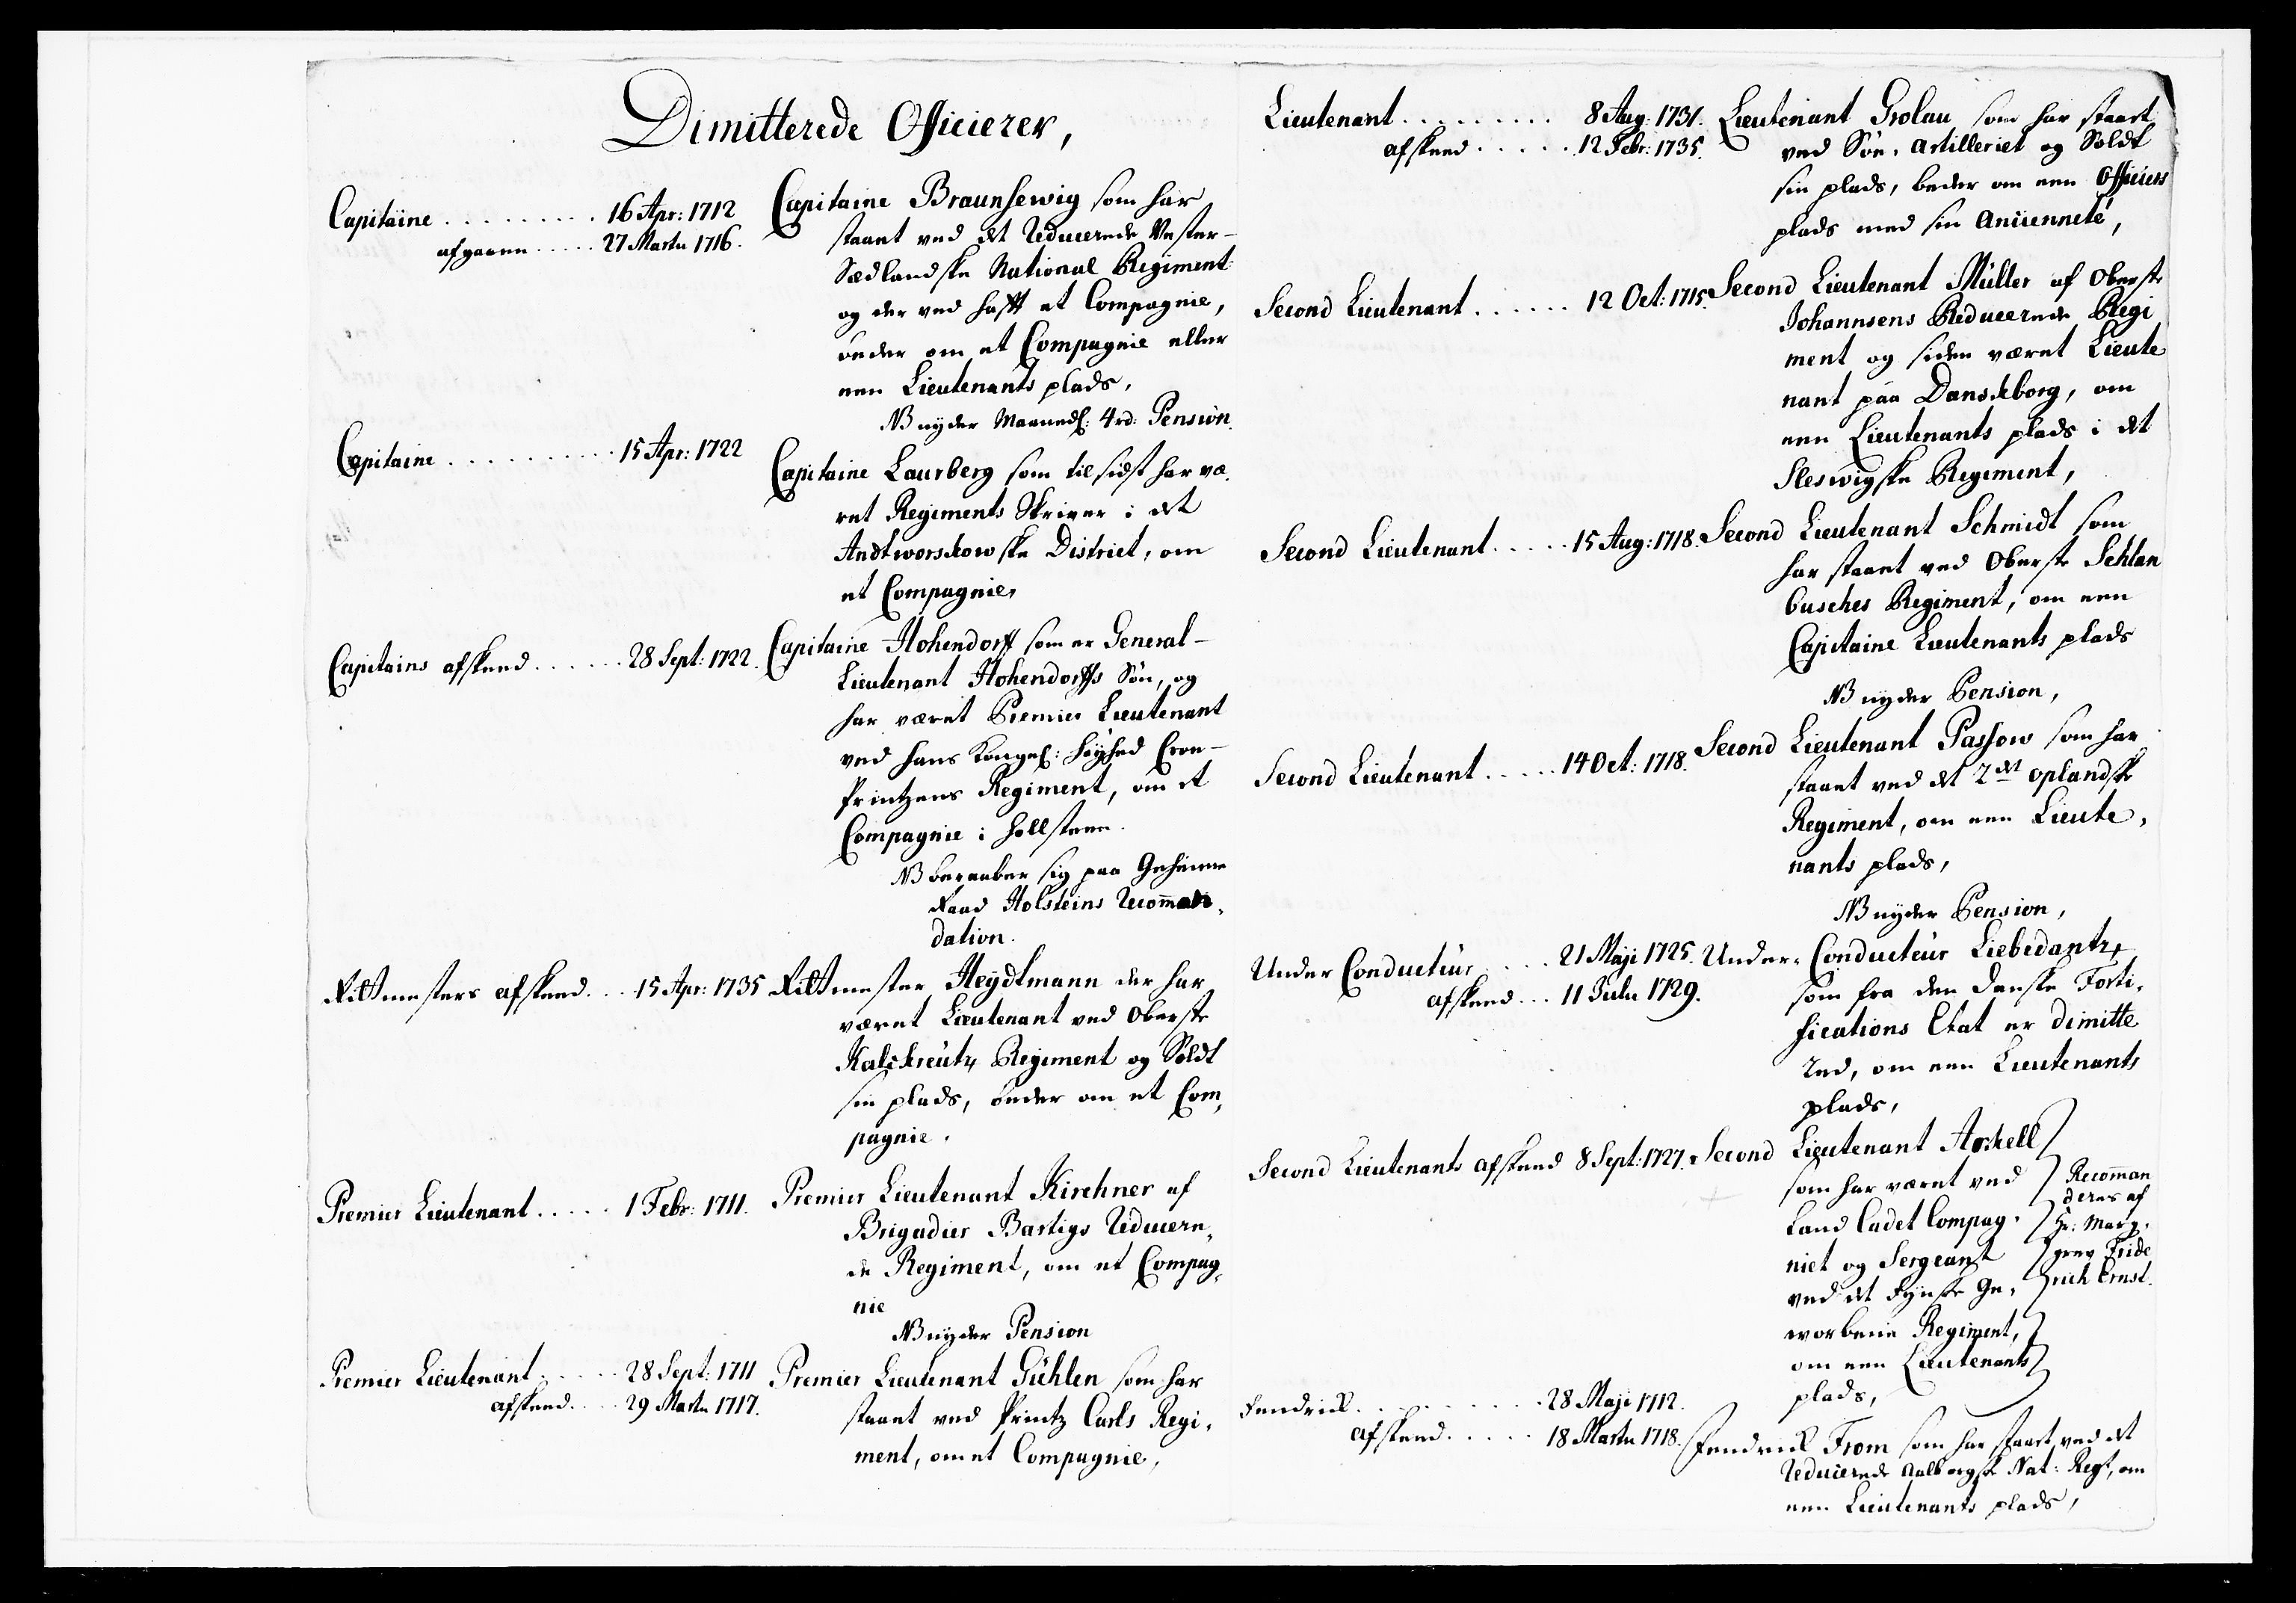 Dimitterede Officierer,
Capitaine . . . . . . . . . 16 Apr: 1712
afgaaen . . . . . 27 Martii 1716.
Capitaine Braunschwig som har
staaet ved det Reducerede Vester-
Siædlandske National Regiment
og der ved hafft et Compagnie,
beder om et Compagnie eller
een Lieutenants plads,
NB nyder Maanedl: 4 rd: Pension.
Capitaine . . . . . . . . . . 15 Apr: 1722
Capitaine Laurberg som til sidst har væ-
ret Regiments Skriver i det
Andtworskowske District, om
et Compagnie,
Capitains afskeed . . . . . . 28 Sept: 1722.
Capitaine Hohendorff som er General-
Lieutenant Hohendorffs Søn, og
har været Premier Lieutenant
ved Hans Kongel: Høyhed Cron-
Printzens Regiment, om et
Compagnie i Hollsteen.
NB beraaber sig paa Geheime
Raad Holsteins Recomman-
dation.
Rittmesters afskeed . . . 15 Apr: 1735
Rittmester Heydtmann der har
været Lieutenant ved Oberste
Kalckreutz Regiment og Soldt
sin plads, beder om et Com-
pagnie.
Premier Lieutenant . . . . . 1 Febr: 1711.
Premier Lieutenant Kirchner af
Brigadier Bartigs Reducere-
de Regiment, om et Compag-
nie
NB nyder Pension
Premier Lieutenant . . . . . 28 Sept: 1711
afskeed . . . . 29 Martii 1717.
Premier Lieutenant Gühlen som har
staaet ved Printz Carls Regi-
ment, om et Compagnie,
Lieutenant . . . . . . . . . 8 Aug: 1731.
afskeed . . . . . 12 Febr: 1735.
Lieutenant Grolau som har staaet
ved Søe-Artilleriet og Soldt
sin plads, beder om een Officiers
plads med sin Ancienneté,
Second Lieutenant . . . . . . 12 Oct: 1715.
Second Lieutenant Müller af Oberste
Johannsens Reducerede Regi
ment og siden været Lieute
nant paa Dansckborg, om
een Lieutenants plads i det
Sleswigske Regiment,
Second Lieutenant . . . . . 15 Aug: 1718.
Second Lieutenant Schmidt som
har staaet ved Oberste Schlan
busches Regiment, om een
Capitaine Lieutenants plads
NB nyder Pension,
Second Lieutenant . . . . . 14 Oct: 1718.
Second Lieutenant Passow som har
staaet ved det 2det oplandske
Regiment, om een Lieute-
nants plads,
NB nyder Pension,
Under Conducteur . . . . 21 Maji 1725.
afskeed . . . 11 Julii 1729.
Under-Conducteur Liebedantz,
som fra den Danske Forti-
fications Etat er dimitte
red, om een Lieutenants
plads,
Second Lieutenants afskeed 8 Sept: 1727.
Second Lieutenant
som har været ved
Land Cadet Compag-
niet og Sergeant
ved det Fynske Ge-
worbene Regiment,
om een Lieutenants
plads,
Recomman
deres af
Hr: Marg-
grev Fride
rich Ernst.
Fendrick . . . . . . . . . . 28 Maji 1712.
afskeed . . . . . 18 Martii 1718.
Fendrick From som har staaet ved det
Reducerede Aalborgske Nat: Regt, om
een Lieutenants plads,